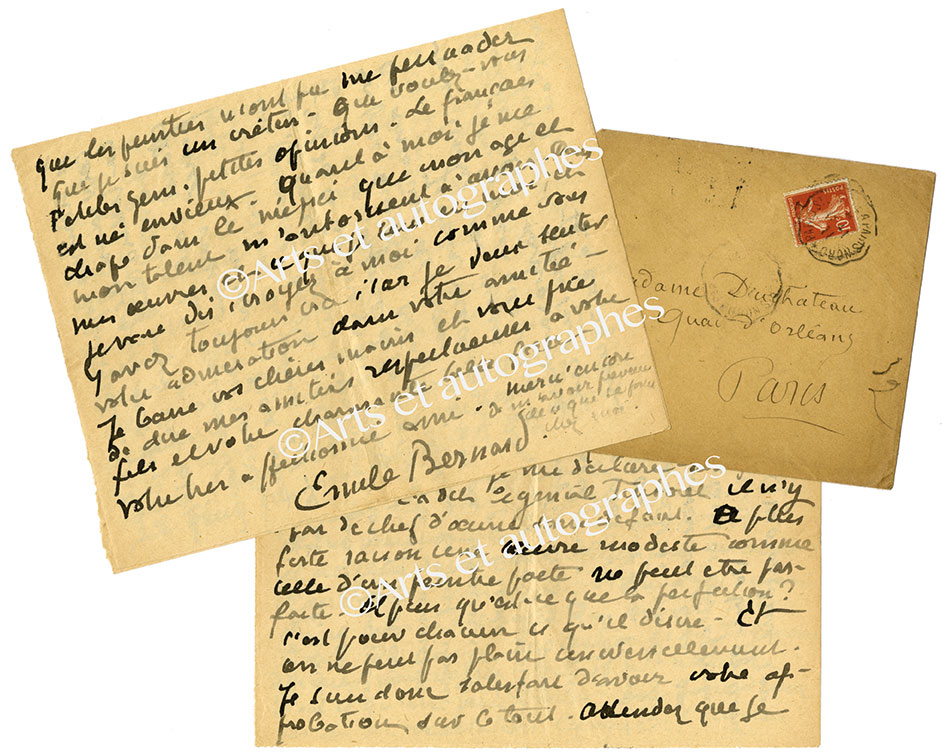 que les peintres n'ont pu me persuader
que je suis un crétin. Que voulez-vous
petites gens, petites opinions. Le français
est né envieux. Quant à moi je me
drape dans le mépris que mon age et
mon talent m'autorisent à avoir
mes œuvres
je vous dis croyez à moi comme vous
y avez toujours cru car je veux sentir
votre admiration dans votre amitié -
Je baise vos chères mains et vous prie
de dire mes amitiés respectueuses à votre
fils et votre charmante belle
votre très affectionné ami. merci encore
de m'avoir
de ce que
chez
Emile Bernard
©Arts et autographes
©Arts et autographes
POSTES
10
Madame Duchateau
Quai d'Orléans
Paris
je me déclare
il n'y
pas de chef d'œuvre sans défaut. A plus
forte raison une œuvre modeste comme
celle d'un peintre poete ne peut etre par-
faite. Et puis qu'est-ce que la perfection?
c'est pour chacun ce qu'il désire - Et
on ne peut pas plaire universellement.
Je suis donc satisfait d'avoir votre ap-
probation sur le tout. Attendez que je
©Arts et autographes